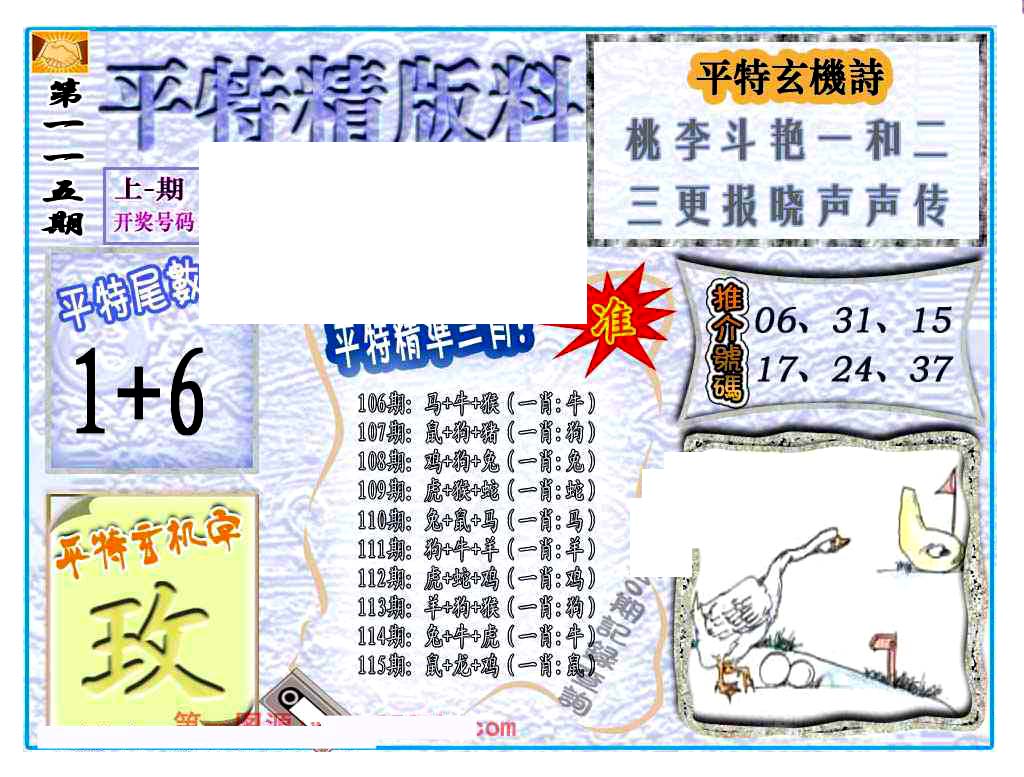 第一一五期
平特精版料
上-期
开奖号码
平特玄機詩
桃李斗艳一和二
三更报晓声声传
平特尾數
1+6
平特精準三肖!
准
推介號碼
06、31、15
17、24、37
106期: 马+牛+猴 (一肖:牛)
107期: 鼠+狗+猪 (一肖:狗)
108期: 鸡+狗+兔 (一肖:兔)
109期: 虎+猴+蛇 (一肖:蛇)
110期: 兔+鼠+马 (一肖:马)
111期: 狗+牛+羊 (一肖:羊)
112期: 虎+蛇+鸡 (一肖:鸡)
113期: 羊+狗+猴 (一肖:狗)
114期: 兔+牛+虎 (一肖:牛)
115期: 鼠+龙+鸡 (一肖:鼠)
期記錄查詢
平特玄机字
玫
.com